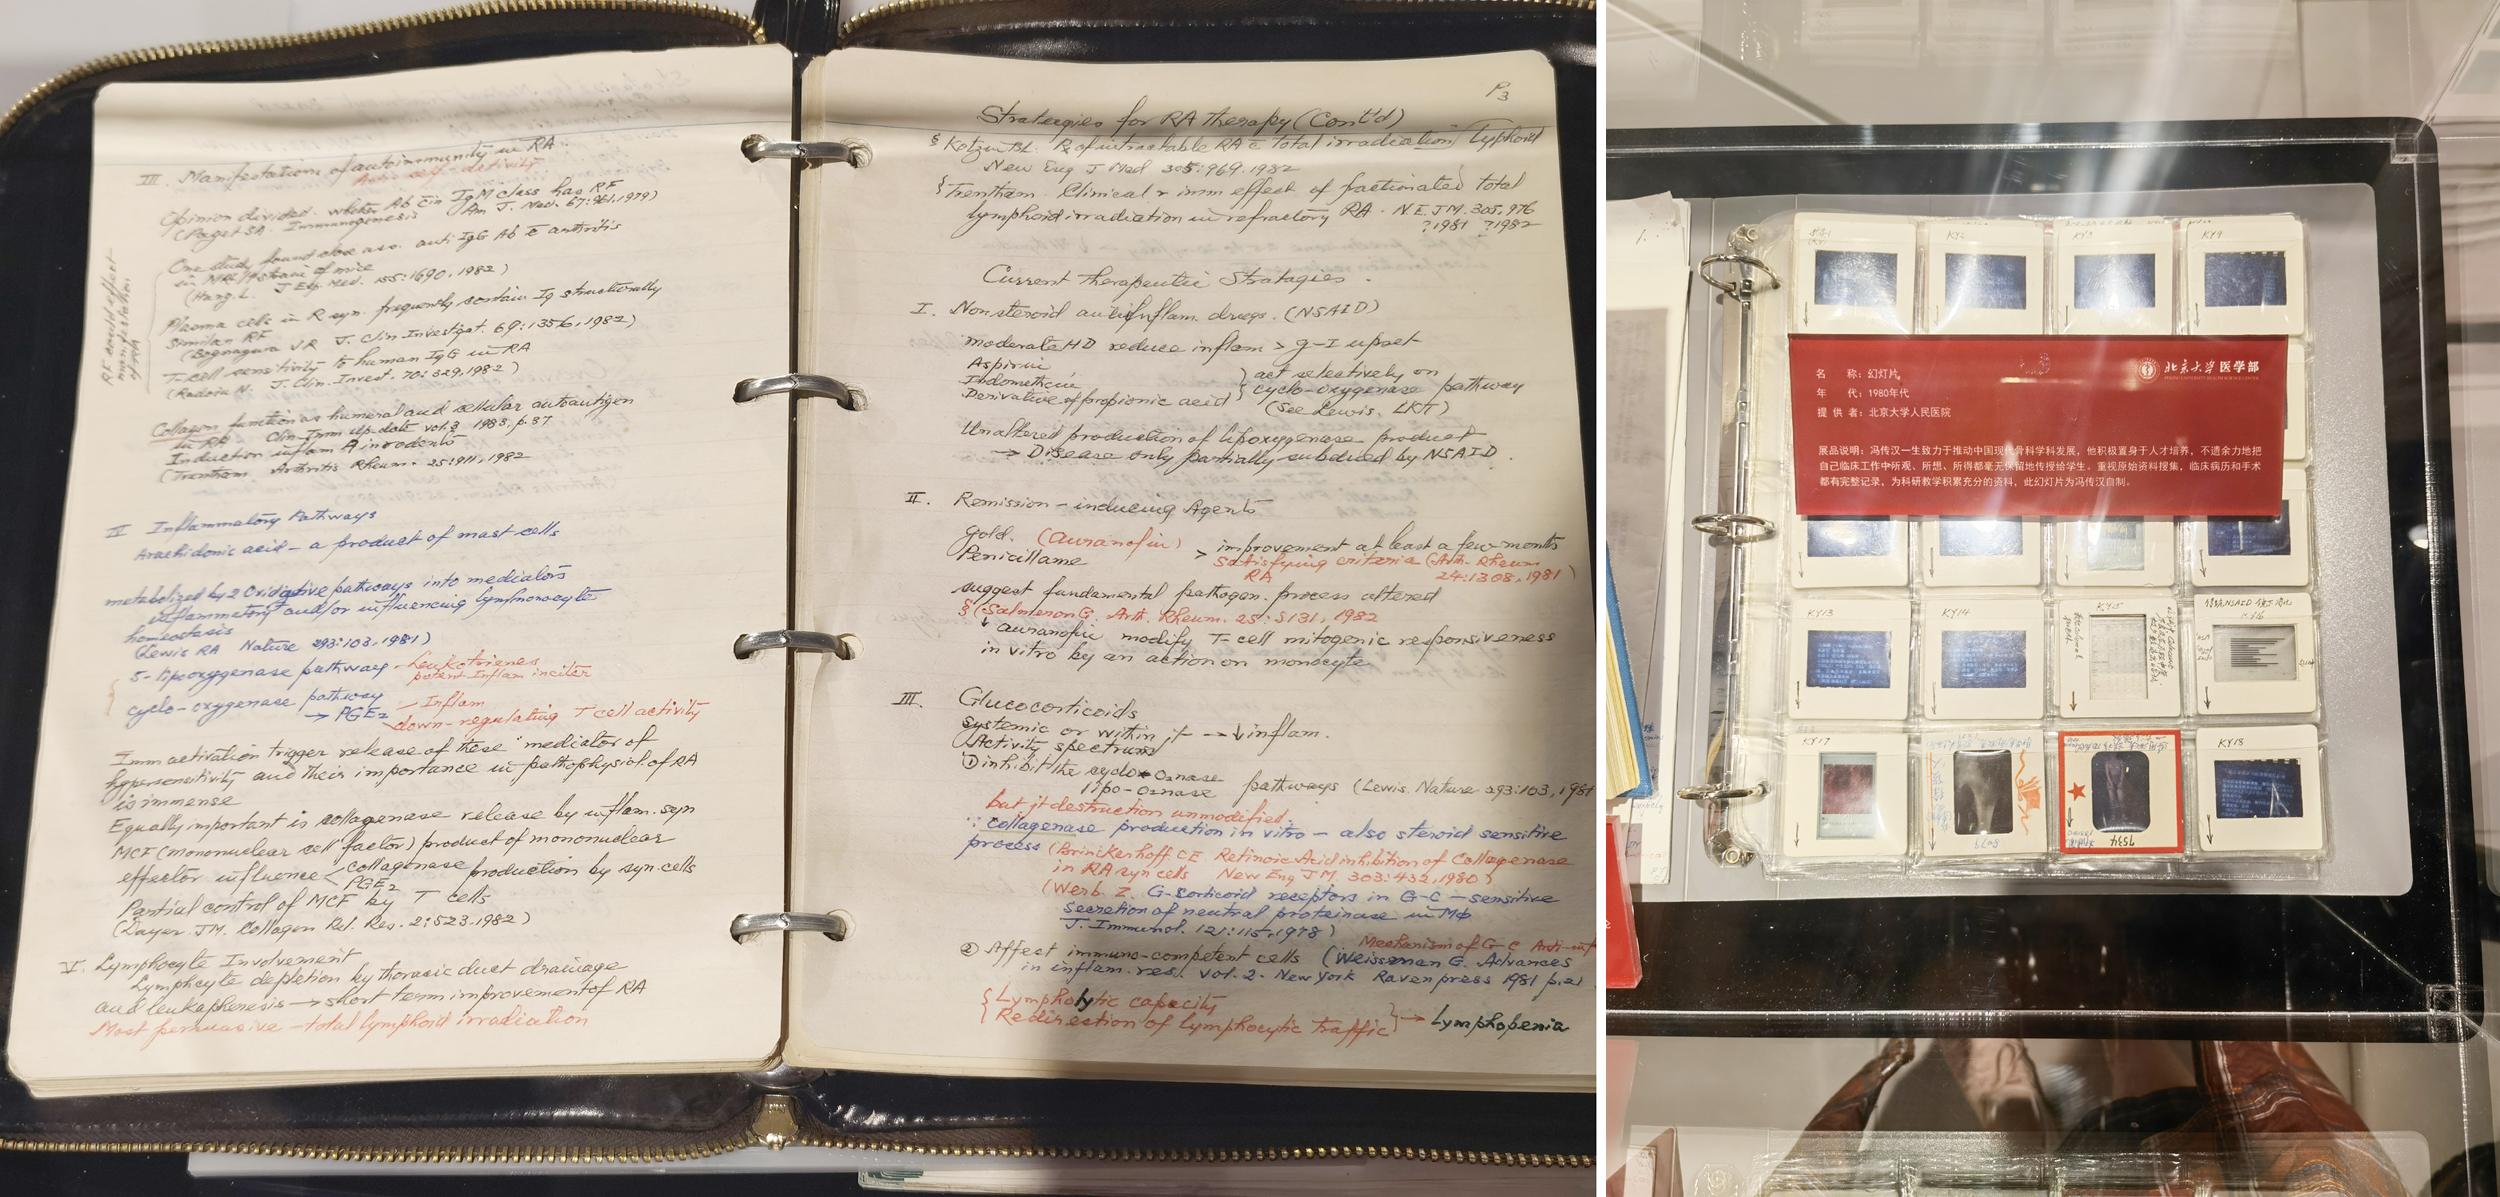 III. Manifestations of autoimmunity in RA.
Anti self-activity
Opinion divided. whether Ab c̄in IgM class has RF
(Paget SA. Immunogenesis Am J. Med. 67:961,1979)
RF could effect
manifestation
of RA
One study found close ass. anti IgG Ab c̄ arthritis
in MRL/1 strain of mice
(Hang L. J Exp. Med. 155:1690, 1982)
Plasma cells in R syn. frequently contain Ig structurally
similar RF
J. Clin Investigat. 69:1356, 1982)
T-cell sensitivity to human IgG in RA
J. Clin. Invest. 70:329,1982)
Collagen function as humeral and cellular autoantigen
in RA Clin-Imm up-date vol.3 1983. p.37
Induction inflam A in rodents
(Trentham Arthritis Rheum. 25:911, 1982
IV Inflammatory Pathways
Arachidonic acid - a product of mast cells
metabolized by 2 oxidative pathways into mediators
inflammatory and/or influencing lymnonocyte
homeostasis
(Lewis RA Nature 293:103, 1981)
5-lipoxygenase pathway - Leukotrienes
potent Inflam inciter
cyclo-oxygenase pathway
→ PGE2 - Inflam
down-regulating T cell activity
Imm activation trigger release of these "mediator of
hypersensitivity and their importance in pathophysiol. of RA
is immense
Equally important is collagenase release by inflam. syn
MCF (mononuclear cell factor) product of mononuclear
effector influence < collagenase production by syn. cells
PGE2
Partial control of MCF by T cells
(Dayer JM. Collagen Rel. Res. 2:523.1982)
V. Lymphocyte Involvement
Lymphcyte depletion by thoracic duct drainage
and leukapheresis → short term improvement of RA
Most persuasive - total lymphoid irradiation
P3
Strategies for RA therapy (Cont'd)
§ Kotzin BL. Rx of intractable RA c̄ total irradiation/ Lyphoid
New Eng J Med 305:969. 1982
{Trentham Clinical & imm effect of fractionated total
lymphoid irradiation in refractory RA. N.E.JM. 305,976
?1981 ?1982
Current therapeutic Stratagies.
I. Nonsteroid antiinflam. drugs. (NSAID)
moderate HD reduce inflam > g-I upset
Aspirin
Indomethicin
Derivative of propionic acid
} act selectively on
cyclo-oxygenase pathway
(see Lewis. LKT)
Unaltered production of lipoxygenase product
→ Disease only partially subdued by NSAID.
II. Remission - inducing Agents
gold. (auranofin)
Penicillame
> improvement at least a few months
satisfying criteria (Arth. Rheum
RA 24:1308, 1981)
suggest fundamental pathogen. process altered
§ (Salmeron G. Arth. Rheum. 25:S131, 1982
↓ auranofin modify T-cell mitogenic responsiveness
in vitro by an action on monocyte
III. Glucocorticoids
systemic or within jt → ↓ inflam.
Activity spectrum
① inhibit the cyclo-O2nase
lipo-O2nase pathways (Lewis. Nature 293:103, 1981
but jt destruction unmodified.
∵ collagenase production in vitro - also steroid sensitive
process (Brinckerhoff CE. Retinoic Acid inhibition of Collagenase
in RA syn cells New Eng JM. 303:432,1980)
(Werb. Z. G-corticoid receptors in G-C - sensitive
secretion of neutral proteinase in Mφ
J. Immunol. 121:115,1978)
Mechanism of G-C Anti-inf
② Affect immuno-competent cells (Weissman G. Advances
in inflam. res. vol. 2. New York Raven press 1981 p.21
{Lympholytic capacity
Redirection of lymphocytic traffic} → Lymphopenia
KY2
KY3
北京大学医学部
PEKING UNIVERSITY HEALTH SCIENCE CENTER
名 称：幻灯片
年 代：1980年代
提 供 者：北京大学人民医院
展品说明：冯传汉一生致力于推动中国现代骨科学科发展，他积极置身于人才培养，不遗余力地把
自己临床工作中所观、所想、所得都毫无保留地传授给学生。重视原始资料搜集，临床病历和手术
都有完整记录，为科研教学积累充分的资料，此幻灯片为冯传汉自制。
KY13
KY14
KY15
KY16
KY17
KY18
7534